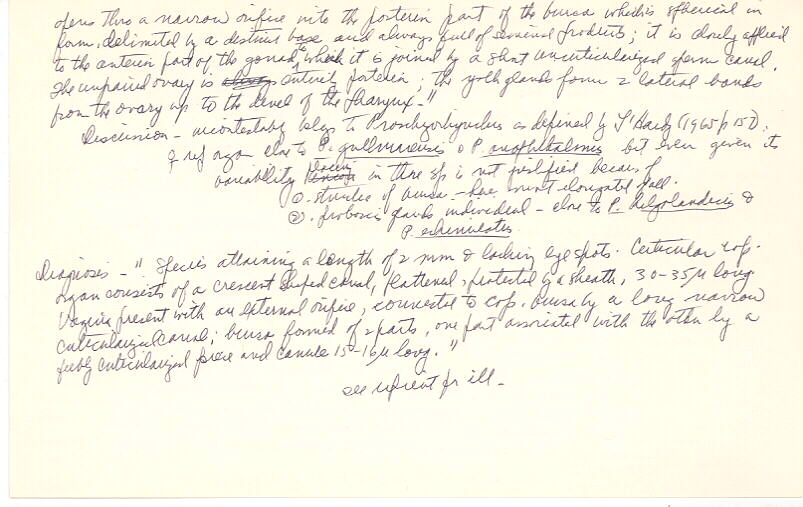 opens thro a narrow orifice into the posterior part of the bursa which is spherical in
form, delimited by a distinct base and always full of seminal products; it is closely applied
to the anterior part of the gonad, to which it is joined by a short uncuticularized sperm canal.
The unpaired ovary is entirely posterior; the yolk glands form 2 lateral bands
from the ovary up to the level of the pharynx -"
Discussion - incontestably belgs to Proschizorhynchus as defined by L'Hardy (1965 p 157);
♀ rep organ close to P. gullmarensis & P. anophthalmus but even given its
variability placing in these sp is not justified because of
①. structure of bursa - here most elongated of all.
②. proboscis glands individual - close to P. helgolandicus &
P. echiniventer
Diagnosis - "Species attaining a length of 2 mm & lacking eye spots. Cuticular cop.
organ consists of a crescent shaped canal, flattened, protected by a sheath, 30-35µ long.
Vagina present with an external orifice, connected to cop. bursa by a long narrow
cuticularized canal; bursa formed of 2 parts, one part associated with the other by a
feebly cuticularized piece and canule 15-16µ long."
see reprint for ill -